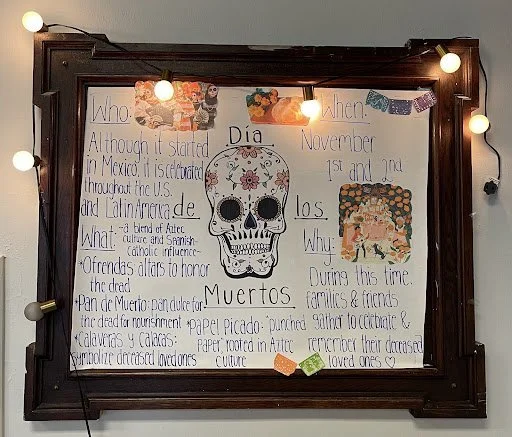 Who:
Although it started
in Mexico, it is celebrated
throughout the U.S.
and Latin America
Día
de los
Muertos
When:
November
1st and 2nd
What: ~a blend of Aztec
culture and Spanish-
catholic influence~
•Ofrendas altars to honor
the dead
•Pan de Muerto: pan dulce for
the dead for nourishment
•Calaveras y Calacas:
symbolize deceased loved ones
•Papel Picado: "punched
paper, rooted in Aztec
culture
Why:
During this time,
families & friends
gather to celebrate &
remember their deceased
loved ones ♡